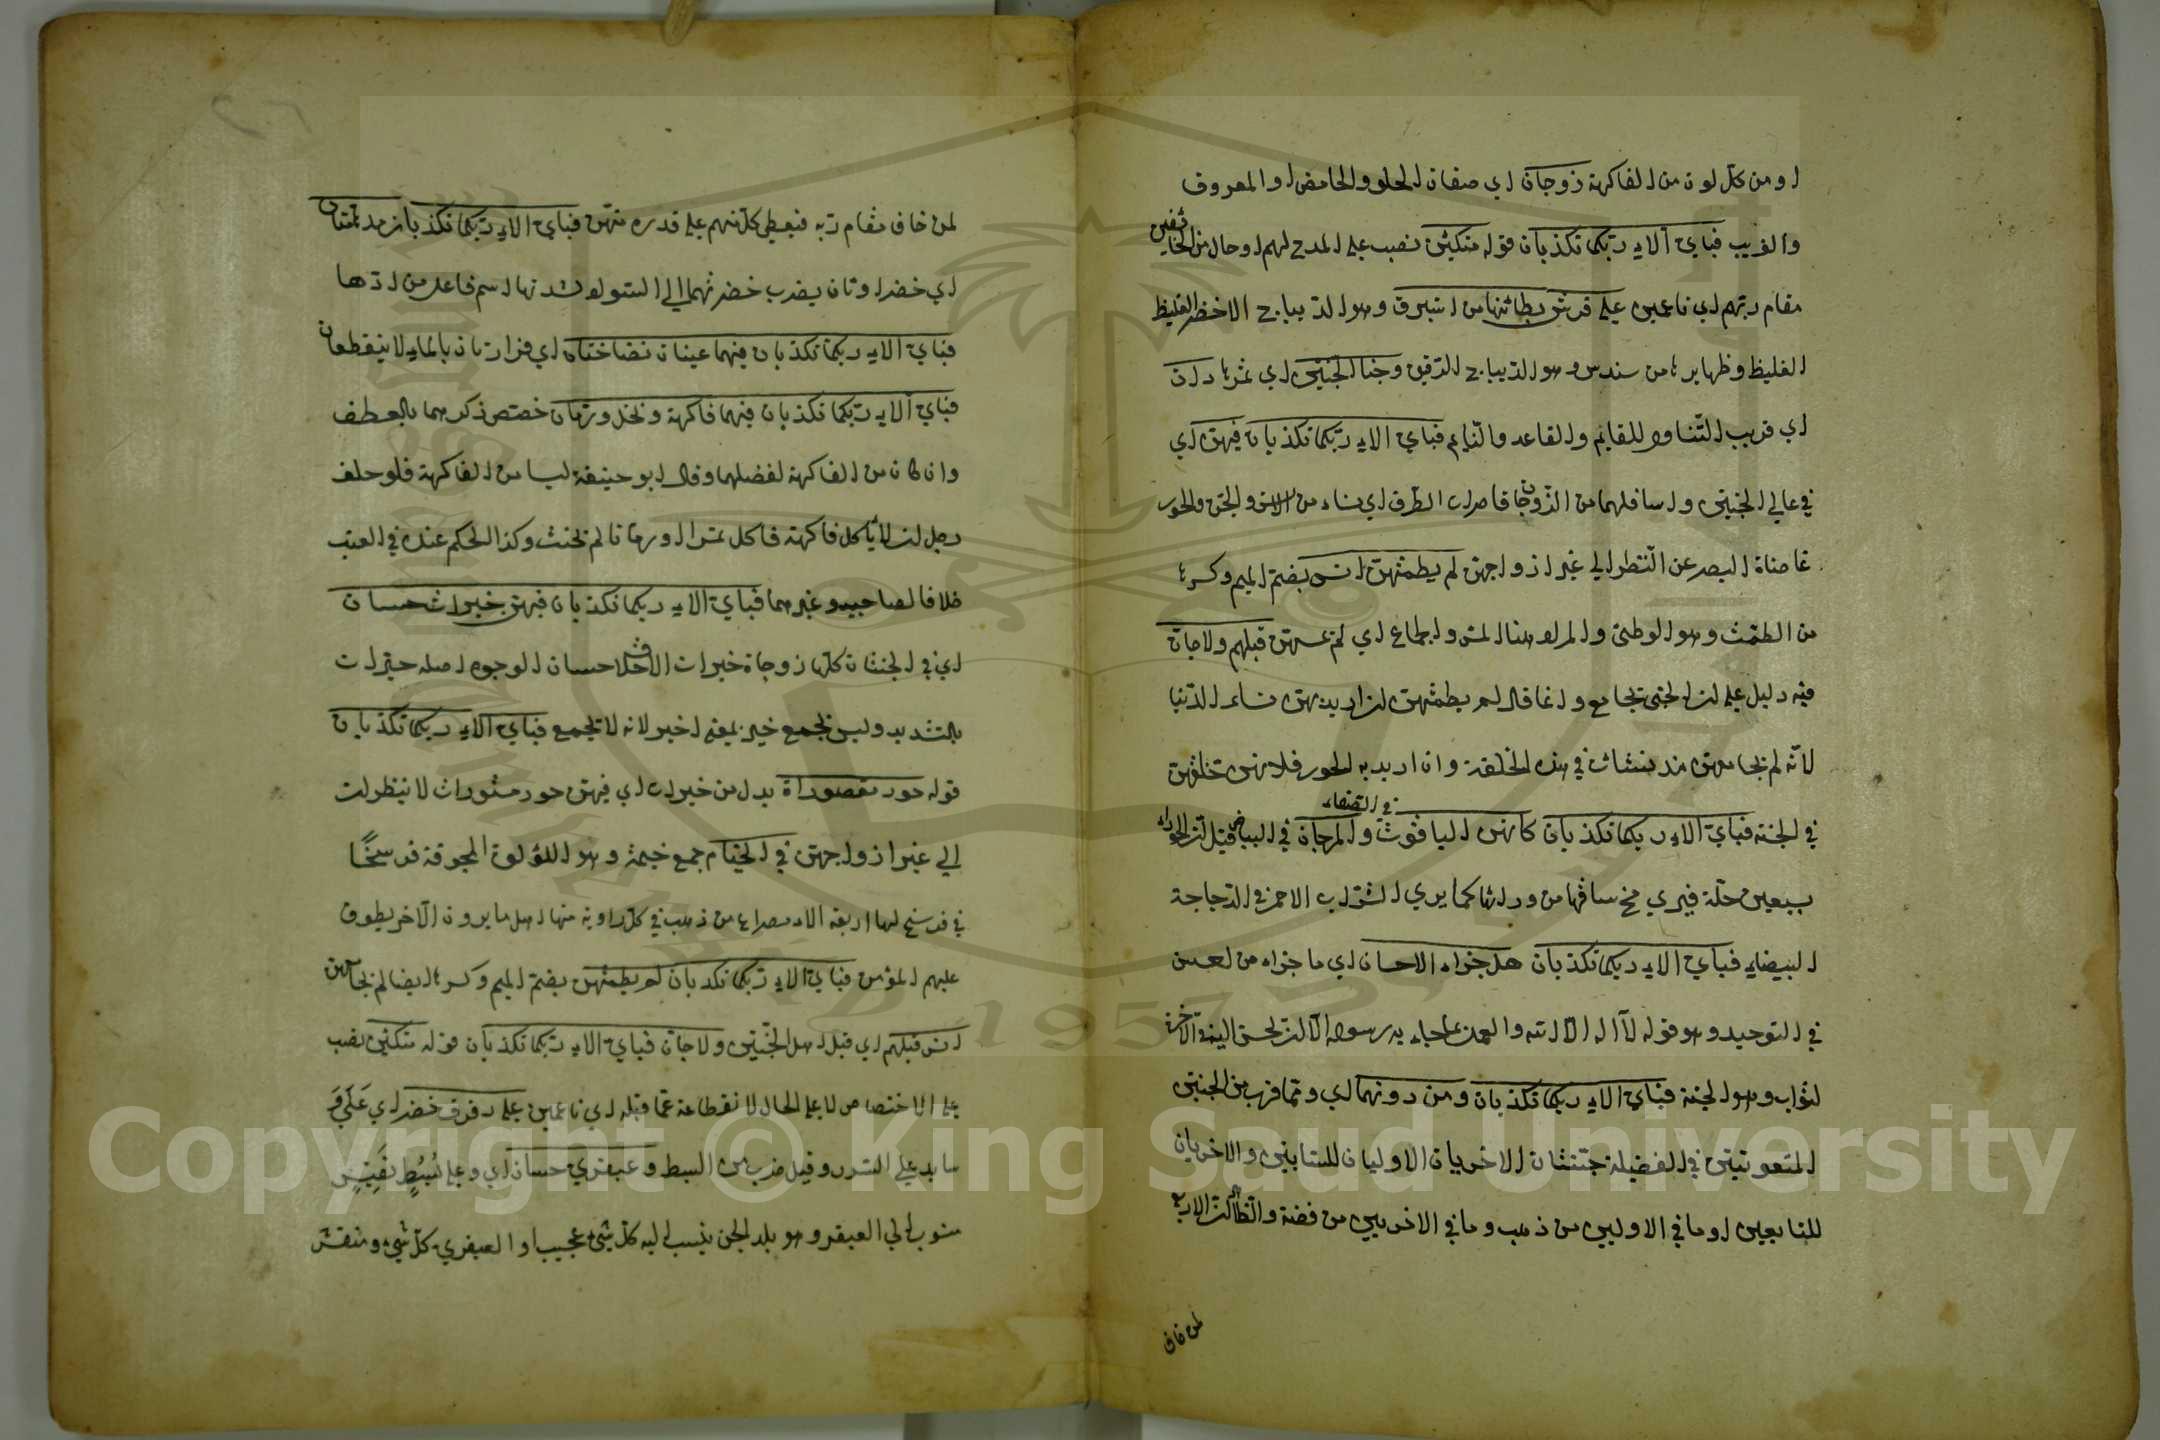 او من كل لون من الفاكهة زوجان اي صنفان الحلو والحامض او المعروف
والغريب فباي آلاء ربكما تكذبان قوله متكئين نصب على المدح لهم او حال من الخائفين
مقام ربهم اي ناعمين على فرش بطائنها من استبرق وهو الديباج الاخضر الغليظ
الغليظ وظهايرها من سندس وهو الديباج الرقيق وجنا الجنتين اي ثمرها دان
اي قريب التناول للقايم والقاعد والنايم فباي الاء ربكما تكذبان فيهن اي
في عالي الجنتين واسافلهما من الزوجات قاصرات الطرف اي نساء من الانس والجن والحور
غاضاة البصر عن النظر الي غير ازواجهن لم يطمثهن انس بضم الميم وكسرها
من الطمث وهو الوطئ والمراد هنا المس والجماع اي لم يمسهن قبلهم ولا جان
فيه دليل على ان الجني يجامع وانما قال لم يطمثهن ان اريد بهن نساء الدنيا
لانه لم يجامعهن منذ نشان في هذه الخلقة وان اريد به الحور فلانهن خلقهن
في الجنة فباي الاء ربكما تكذبان كانهن الياقوت في الصفاء والمرجان في البياض قيل ان الحوراء
بسبعين حلة فيري مخ ساقها من ورائها كما يري الشراب الاحمر في الزجاجة
البيضاء فباي الاء ربكما تكذبان هل جزاء الاحسان اي ما جزاء من احسن
في التوحيد وهو قوله لا اله الا الله والعمل بما جاء به رسوله الا ان يحسن اليه في الاخرة
لثواب وهو الجنة فباي الاء ربكما تكذبان ومن دونهما اي ومما قرب من الجنتين
المنعوتتين في الفضيلة جنتان الاخريان الاوليان للسابقين والاخريان
للتابعين او ما في الاوليين من ذهب وما في الاخريين من فضة والظاهر ان الاربع
لمن خاف
لمن خاف مقام ربه فيعطي كل منهم على قدره منهن فباي الاء ربكما تكذبان مدهامتان
اي خضراوتان يضرب خضرتهما الي السواد لشدتها اسم فاعل من ادهام
فباي الاء ربكما تكذبان فيهما عينان نضاختان اي فوارتان بالماء لا ينقطعان
فباي الاء ربكما تكذبان فيهما فاكهة ونخل ورمان خصص ذكرهما بالعطف
وان كان من الفاكهة لفضلهما وقال ابو حنيفة ليسا من الفاكهة فلو حلف
رجل ان لا ياكل فاكهة فاكل تمرا او رمانا لم يحنث وكذا الحكم عنده في العنب
خلافا لصاحبيه وغيرهما فباي الاء ربكما تكذبان فيهن خيرات حسان
اي في الجنتان كلها زوجاة خيرات الاخلاق حسان الوجوه اصله خيرات
بالتشديد وليس بجمع خير بمعني اخير لانه لا يجمع فباي الاء ربكما تكذبان
قوله حور مقصوراة بدل من خيرات اي فيهن حور مستورات لا ينظرن
الي غير ازواجهن في الخيام جمع خيمة وهو اللؤلؤة المجوفة فرسخا
في فرسخ لها اربعة الاف مصراع من ذهب في كل زاوية منها اهل ما يرون الاخر يطوف
عليهم المؤمن فباي الاء ربكما تكذبان لم يطمثهن بضم الميم وكسرها ايضا لم يجامعهن
انس قبلهم اي قبل اهل الجنتين ولا جان فباي الاء ربكما تكذبان قوله متكئين نصب
على الاختصاص لا على الحال لانقطاعه عما قبله اي ناعمين على رفرف خضر اي
على السرر وقيل ضرب من البسط وعبقري حسان اي وعلى بسط نفيس
منسوب الي العبقر وهو بلد الجن ينسب اليه كل شيء عجيب او العبقري كل شيء منقش